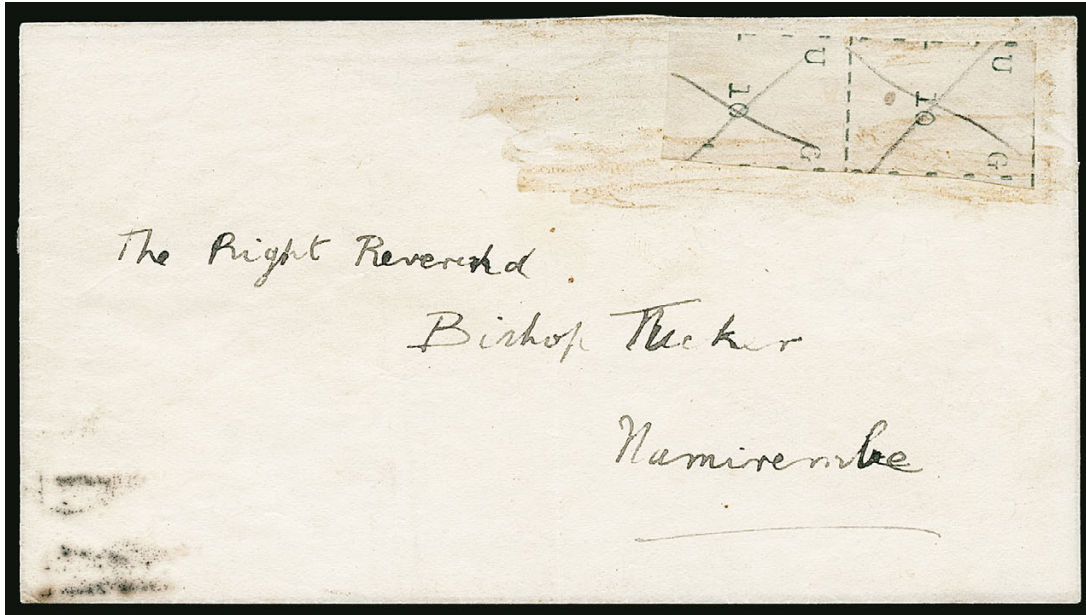 U U
10 10
G G
The Right Reverend
Bishop Tucker
Namirembe